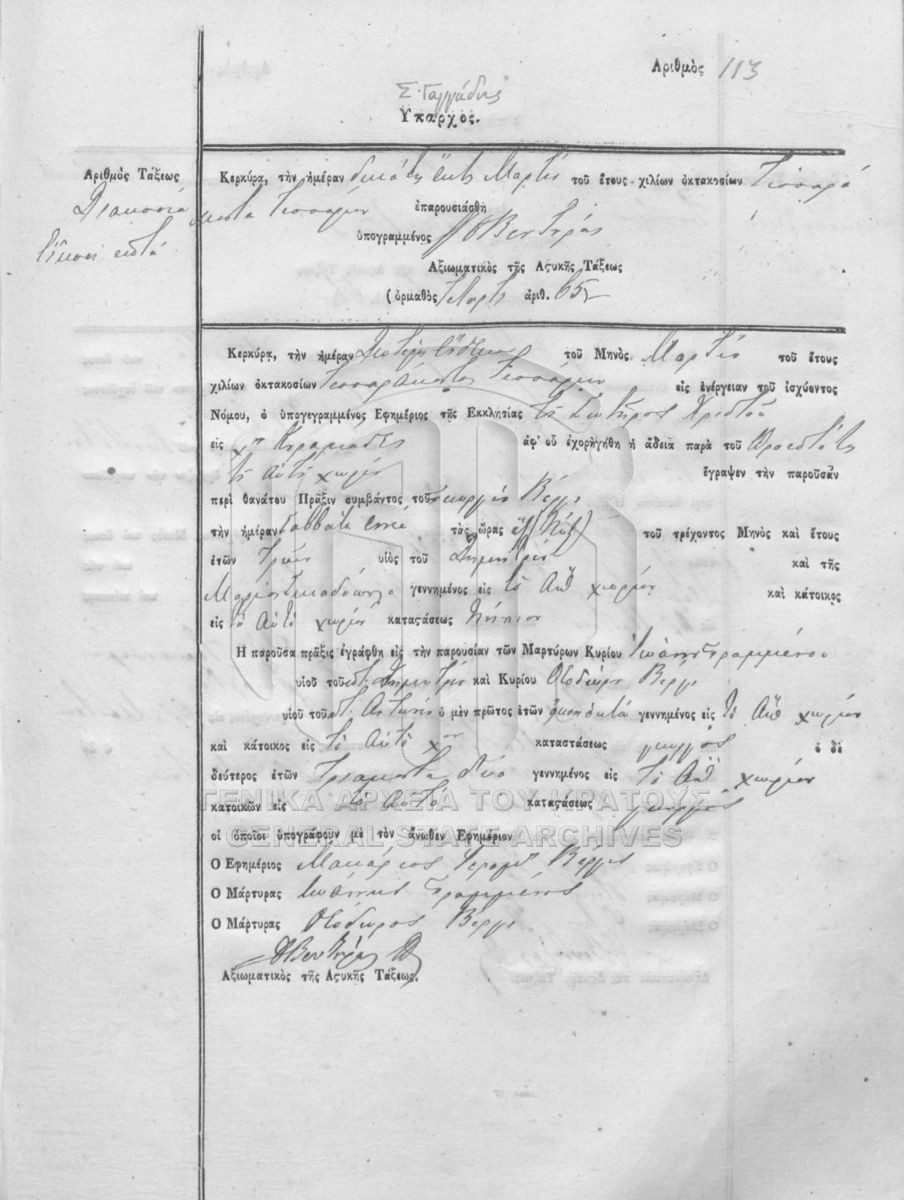 Αριθμὸς 113
Σ. Γαγγάδης
Υπαρχος.
Αριθμὸς Τάξεως
Διακοσια
εἴκοσι επτά
Κερκύρα, τὴν ἡμέραν δεκάτη ἕκτη Μαρτίου τοῦ ἔτους χιλίων ὀκτακοσίων Τεσσαρά
κοντα Τεσσάρων ἐπαρουσιάσθη
ὑπογραμμένος Βεντήρας
Αξιωματικὸς τῆς Αςυκῆς Τάξεως
(ὁρμαθὸς Τέταρτος ἀριθ. 65
Κερκύρα, τὴν ἡμέραν Δευτέρη τοῦ Μηνὸς Μαρτίου τοῦ ἔτους
χιλίων ὀκτακοσίων Τεσσαράκοντα Τεσσάρων εἰς ἐνέργειαν τοῦ ἰσχύοντος
Νόμου, ὁ ὑπογεγραμμένος Εφημέριος τῆς Εκκλησίας τοῦ Σωτῆρος Χριστοῦ
εἰς Κεραμιάδες ἀφ' οὗ ἐχορηγήθη ἡ ἄδεια παρὰ τοῦ Προεστότος
τοῦ Αυτοῦ χωρίου ἔγραψεν τὴν παροῦσαν
περὶ θανάτου Πρᾶξιν συμβάντος τοῦ Γεωργίου Βέργη
τὴν ἡμέραν Σαββάτο τὰς ὥρας ἕξ τοῦ τρέχοντος Μηνὸς καὶ ἔτους
ἐτῶν Τριῶν υἱὸς τοῦ Δημητρίου καὶ τῆς
Μαρίας γεννημένος εἰς τὸ Αυ χωρίον καὶ κάτοικος
εἰς τὸ Αυτὸ χωρίον καταςάσεως Νήπιον
Η παροῦσα πρᾶξις ἐγράφθη εἰς τὴν παρουσίαν τῶν Μαρτύρων Κυρίου Ἰωάννη Γραμμένου
υἱοῦ τοῦ Δημητρίου καὶ Κυρίου Θεοδώρου Βεργη
υἱοῦ τοῦ Αντωνίου ὁ μὲν πρῶτος ἐτῶν εἴκοσι ὀκτώ γεννημένος εἰς τὸ Αυ χωρίον
καὶ κάτοικος εἰς τὸ Αυτὸ καταστάσεως γεωργὸς ὁ δὲ
δεύτερος ἐτῶν Τριάκοντα δύο γεννημένος εἰς τὸ Αυ χωρίον
κατοικῶν εἰς τὸ Αυτὸ καταςάσεως γεωργὸς
οἱ ὁποῖοι ὑπογράφουν μὲ τὸν ἄνωθεν Εφημέριον
Ο Εφημέριος Μακάριος Ιερομ Βεργης
Ο Μάρτυρας Ιωάννης Γραμμένος
Ο Μάρτυρας Θεόδωρος Βεργη
Βεντήρας
Αξιωματικὸς τῆς Αςυκῆς Τάξεως.
ΓΕΝΙΚΑ ΑΡΧΕΙΑ ΤΟΥ ΚΡΑΤΟΥΣ
GENERAL STATE ARCHIVES